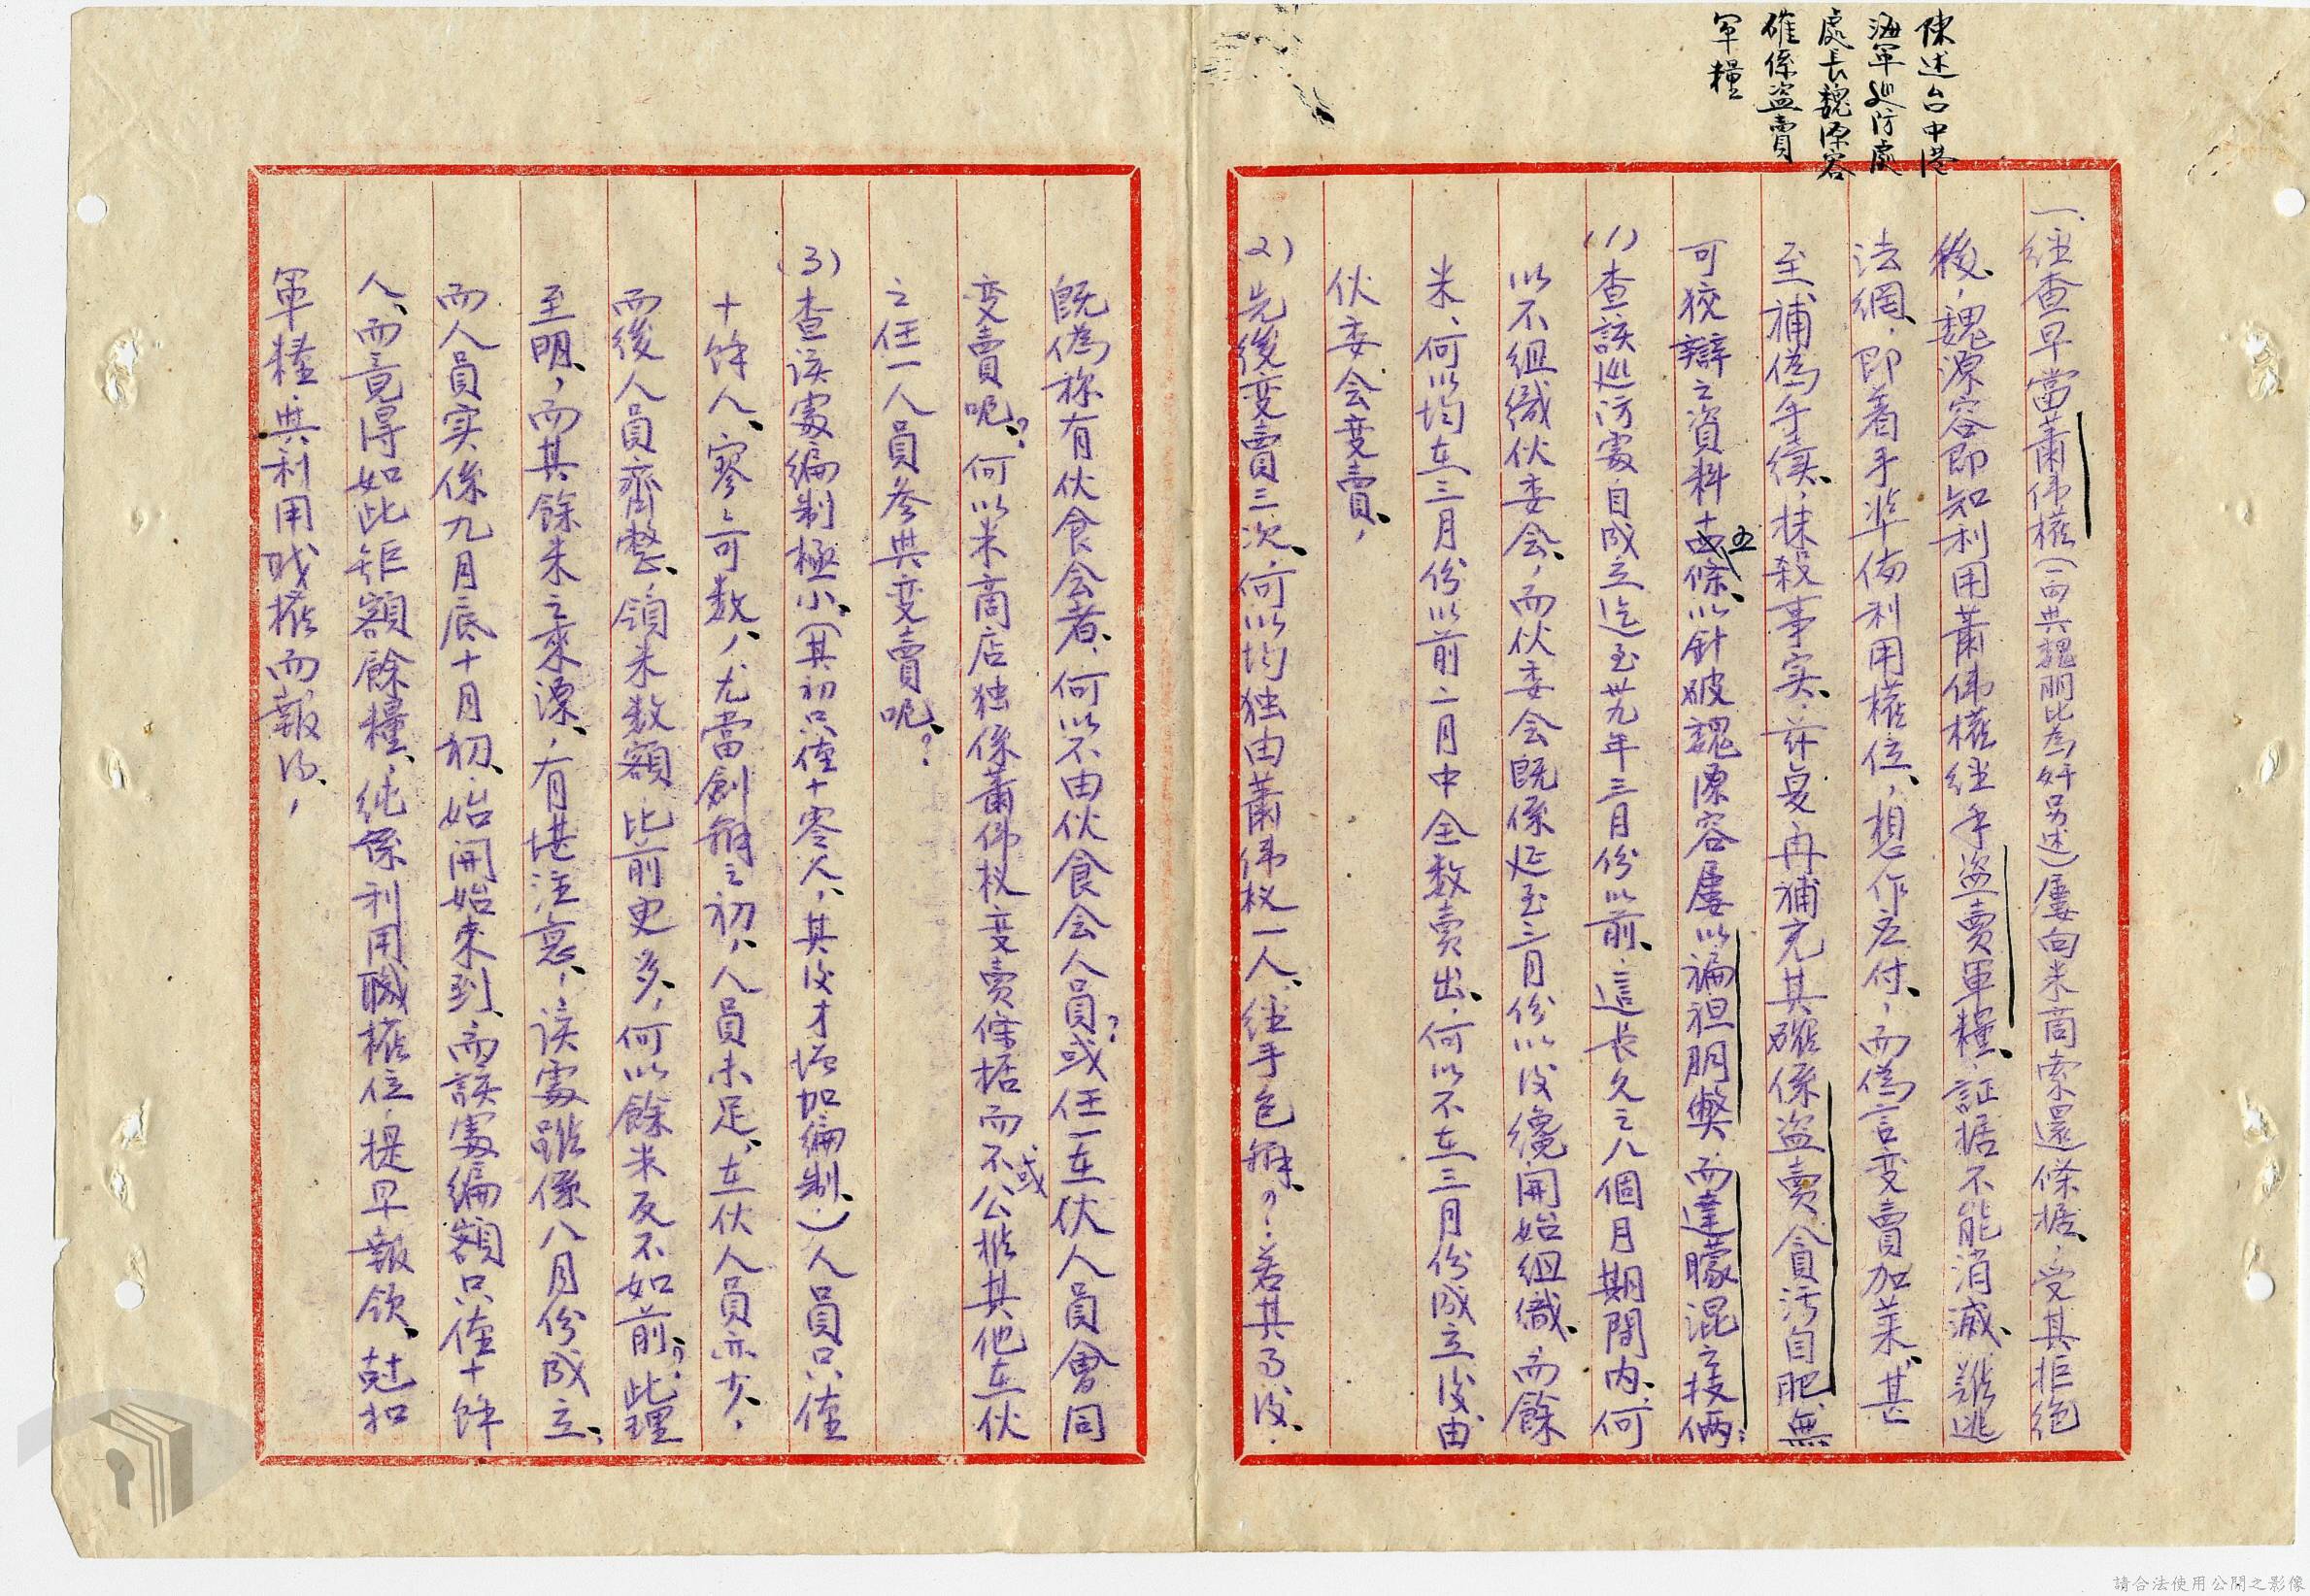 陳述台中港
海軍巡防處
處長魏源容
確係盜賣
軍糧
一、經查早當蕭佛權(而與魏朋比為奸另述)屢向米商索還條据、受其拒絕
後、魏源容即知利用蕭佛權經手盜賣軍糧、証据不能消滅、難逃
法網、即着手準俻利用權位、想作应付、而偽言变賣加菜、甚
至補偽手續、抹殺事实、茲复再補充其確係盜賣貪污自肥、無
可狡辯之資料十五條、以針破魏源容屢以褊袒朋獘、而達矇混之技倆:
(1)查該巡防處自成立迄至卅九年三月份以前、這長久之八個月期間內、何
以不組織伙委会、而伙委会既係延至三月份以後纔開始組織、而餘
米、何以均在三月份以前二月中全数賣出、何以不在三月份成立後由
伙委会变賣、
2)先後变賣三次、何以均独由蕭佛权一人、經手包辦、?若其事後、
既偽称有伙食会者、何以不由伙食会人員?或任一在伙人員會同
变賣呢、?何以米商店独係蕭佛权变賣條据而不或公推其他在伙
之任一人員参與变賣呢、?
(3)查該處編制極小、(其初只僅十零人、其後才增加編制、)人員只僅
十餘人、寥寥可数、尤當創辦之初、人員未足、在伙人員亦少、
而後人員齊整、領米数額比前更多、何以餘米反不如前、?此理
至明、而其餘米之來源、有堪注意、該處雖係八月份成立、
而人員实係九月底十月初、始開始來到、而該處編額只僅十餘
人、而竟得如此鉅額餘糧、純係利用職權位、提早報領、尅扣
軍糧、與利用职權而報得、
請合法使用公開之影像